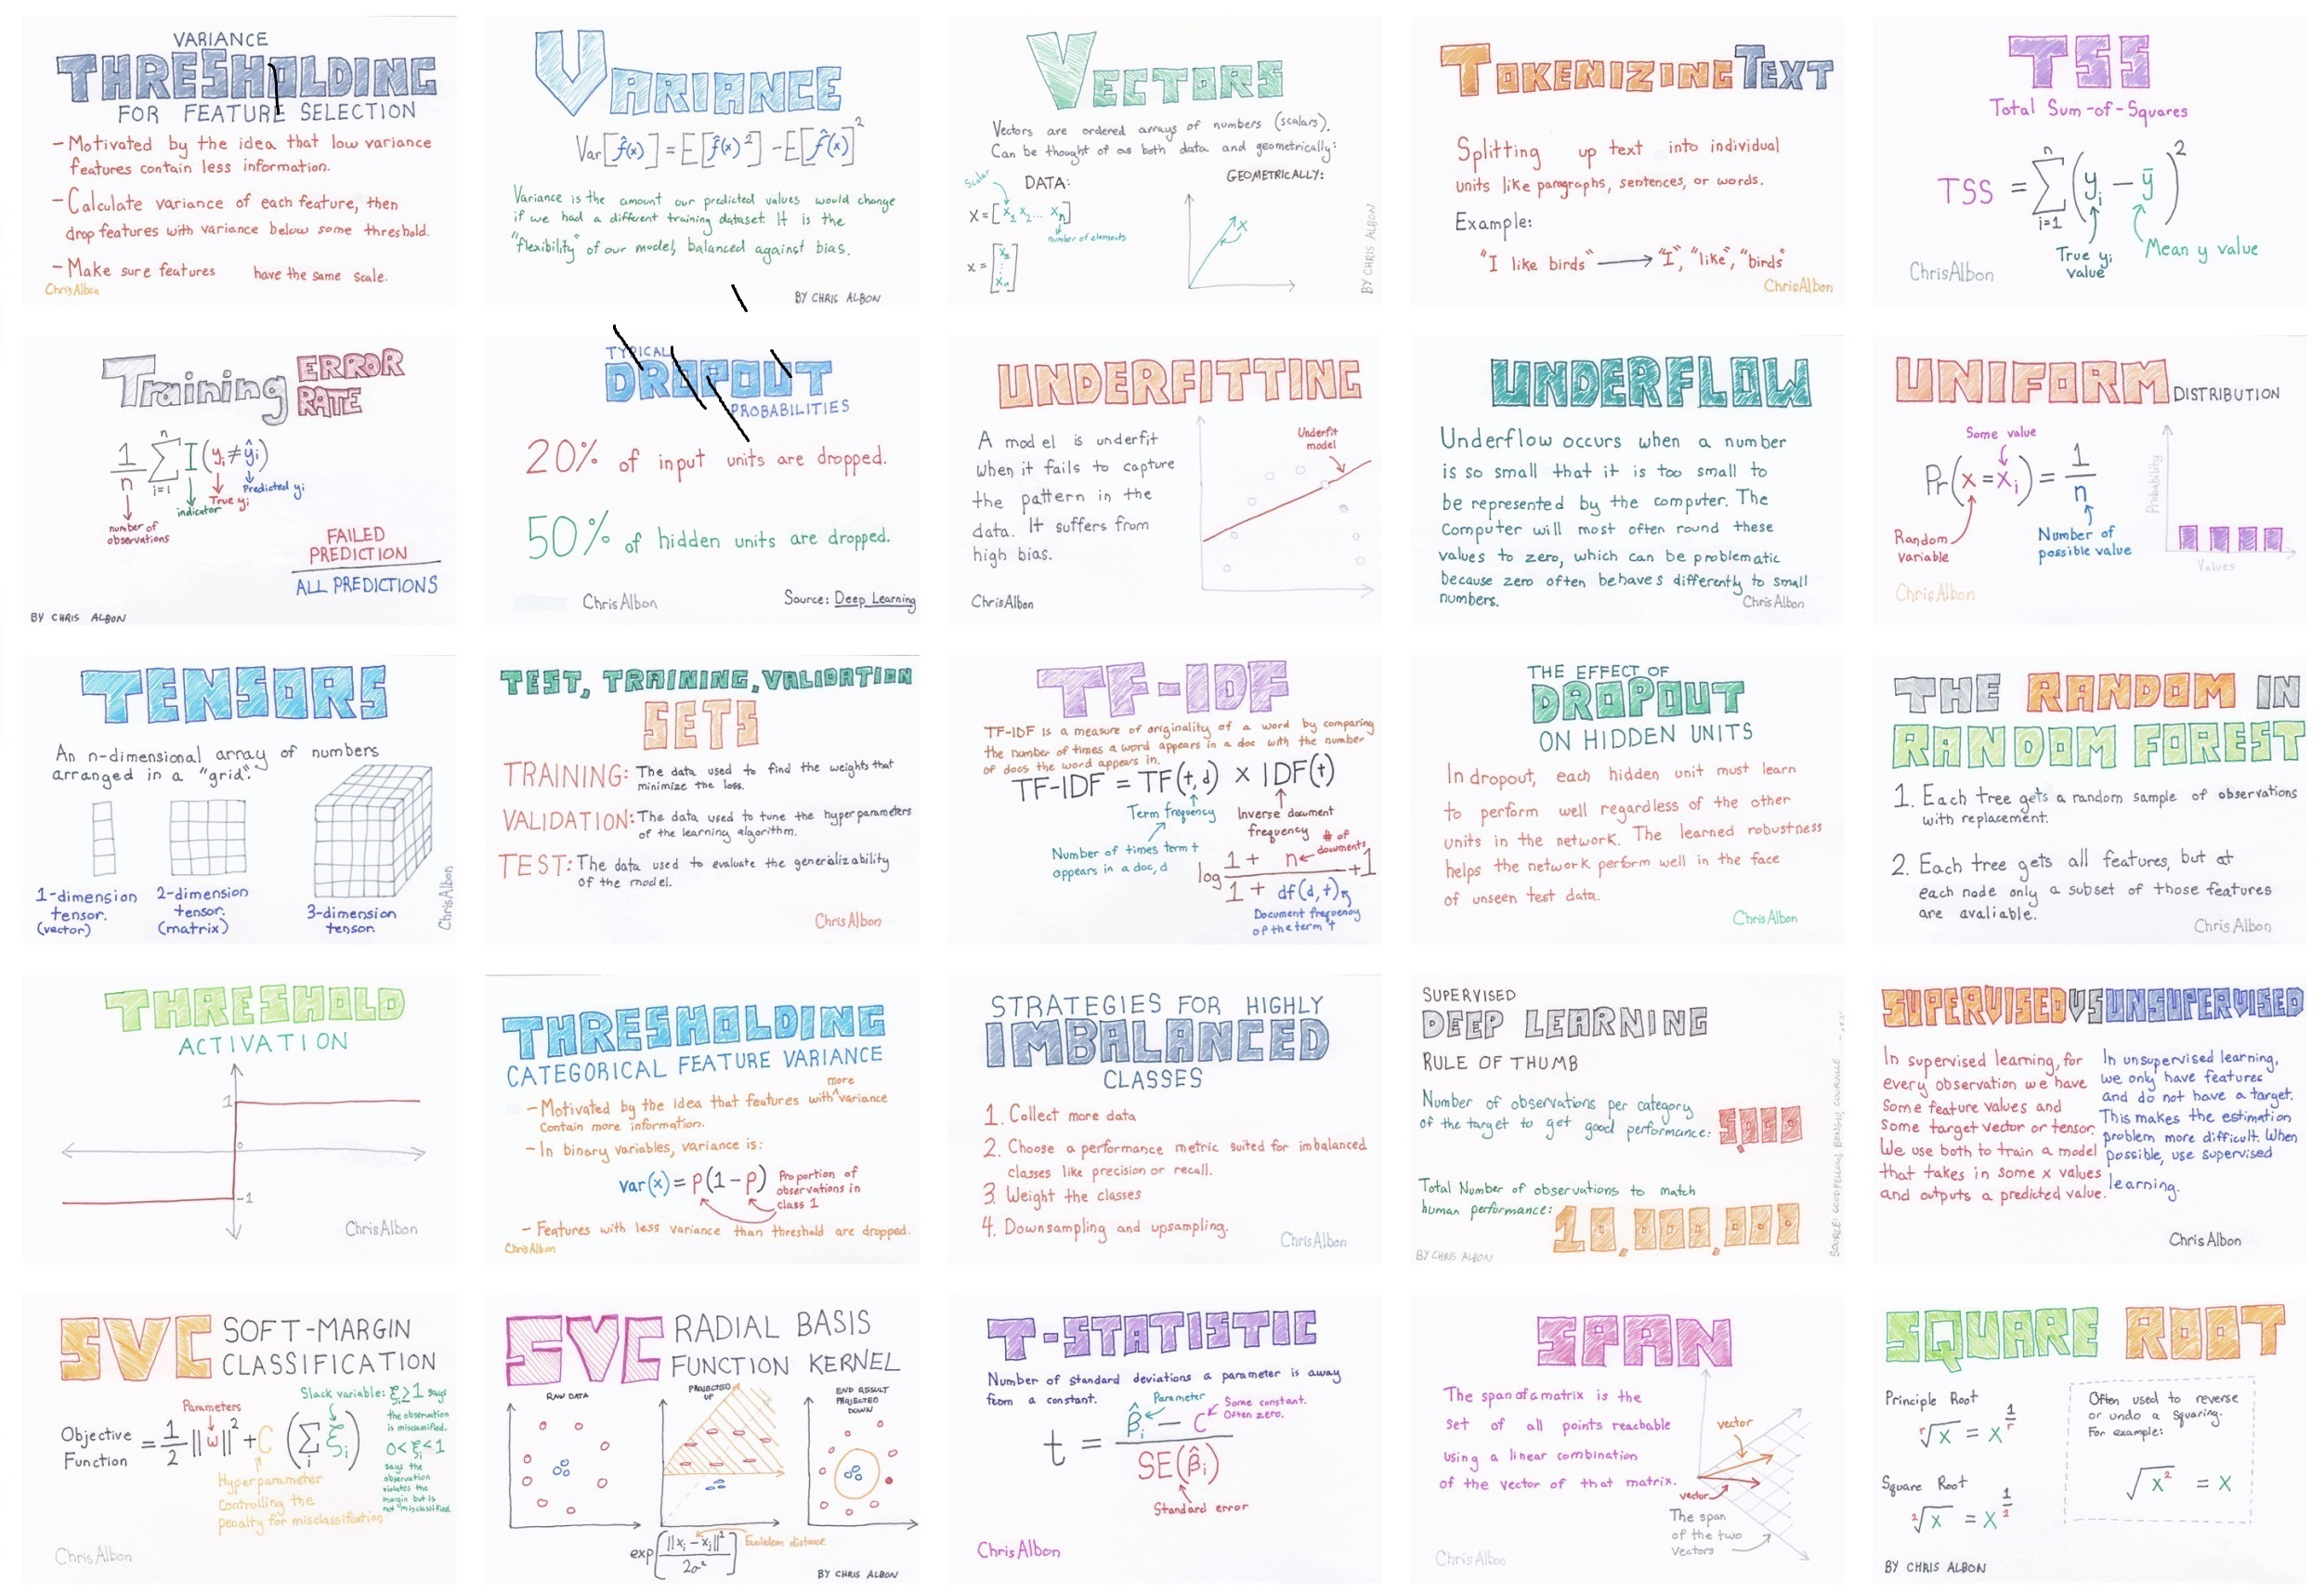 VARIANCE
THRESHOLDING
FOR FEATURE SELECTION
- Motivated by the idea that low variance
features contain less information.
- Calculate variance of each feature, then
drop features with variance below some threshold.
- Make sure features have the same scale.
ChrisAlbon
VARIANCE
Var[f̂(x)] = E[f̂(x)²] - E[f̂(x)]²
Variance is the amount our predicted values would change
if we had a different training dataset. It is the
"flexibility" of our model, balanced against bias.
BY CHRIS ALBON
VECTORS
Vectors are ordered arrays of numbers (scalars).
Can be thought of as both data and geometrically:
Scalar
DATA:
X = [X₁ X₂ ... Xₙ]
number of elements
X = [X₁ ⋮ Xₙ]
GEOMETRICALLY:
X
BY CHRIS ALBON
TOKENIZING TEXT
Splitting up text into individual
units like paragraphs, sentences, or words.
Example:
"I like birds" → "I", "like", "birds"
ChrisAlbon
TSS
Total Sum-of-Squares
TSS = Σ (yᵢ - ȳ)²
n
i=1
True yᵢ
value
Mean y value
ChrisAlbon
Training ERROR
RATE
1/n Σ I(yᵢ ≠ ŷᵢ)
n
i=1
Predicted yᵢ
True yᵢ
indicator
number of
observations
FAILED
PREDICTION
ALL PREDICTIONS
BY CHRIS ALBON
TYPICAL
DROPOUT
PROBABILITIES
20% of input units are dropped.
50% of hidden units are dropped.
ChrisAlbon
Source: Deep Learning
UNDERFITTING
A model is underfit
when it fails to capture
the pattern in the
data. It suffers from
high bias.
Underfit
model
ChrisAlbon
UNDERFLOW
Underflow occurs when a number
is so small that it is too small to
be represented by the computer. The
Computer will most often round these
values to zero, which can be problematic
because zero often behaves differently to small
numbers.
ChrisAlbon
UNIFORM DISTRIBUTION
Some value
Pr(x = xᵢ) = 1/n
Random
variable
Number of
possible value
Probability
Values
ChrisAlbon
TENSORS
An n-dimensional array of numbers
arranged in a "grid".
1-dimension
tensor.
(vector)
2-dimension
tensor.
(matrix)
3-dimension
tensor
ChrisAlbon
TEST, TRAINING, VALIDATION
SETS
TRAINING: The data used to find the weights that
minimize the loss.
VALIDATION: The data used to tune the hyperparameters
of the learning algorithm.
TEST: The data used to evaluate the generalizability
of the model.
ChrisAlbon
TF-IDF
TF-IDF is a measure of originality of a word by comparing
the number of times a word appears in a doc with the number
of docs the word appears in.
TF-IDF = TF(t,d) x IDF(t)
Term frequency
Inverse document
frequency
Number of times term t
appears in a doc, d
# of
documents
log (1 + n)/(1 + df(d,t)) + 1
Document frequency
of the term t
THE EFFECT OF
DROPOUT
ON HIDDEN UNITS
In dropout, each hidden unit must learn
to perform well regardless of the other
units in the network. The learned robustness
helps the network perform well in the face
of unseen test data.
ChrisAlbon
THE RANDOM IN
RANDOM FOREST
1. Each tree gets a random sample of observations
with replacement.
2. Each tree gets all features, but at
each node only a subset of those features
are avaliable.
Chris Albon
THRESHOLD
ACTIVATION
1
0
-1
ChrisAlbon
THRESHOLDING
CATEGORICAL FEATURE VARIANCE
more
- Motivated by the idea that features with ^variance
Contain more information.
- In binary variables, variance is:
var(x) = p(1-p)
Proportion of
observations in
class 1
- Features with less variance than threshold are dropped.
ChrisAlbon
STRATEGIES FOR HIGHLY
IMBALANCED
CLASSES
1. Collect more data
2. Choose a performance metric suited for imbalanced
classes like precision or recall.
3. Weight the classes
4. Downsampling and upsampling.
ChrisAlbon
SUPERVISED
DEEP LEARNING
RULE OF THUMB
Number of observations per category
of the target to get good performance: 5,000
Total Number of observations to match
human performance: 10,000,000
BY CHRIS ALBON
SOURCE: GOODFELLOW, BENGIO, COURVILLE
SUPERVISED VS UNSUPERVISED
In supervised learning, for
every observation we have
Some feature values and
some target vector or tensor.
We use both to train a model
that takes in some x values
and outputs a predicted value.
In unsupervised learning,
we only have features
and do not have a target.
This makes the estimation
problem more difficult. When
possible, use supervised
learning.
Chris Albon
SVC SOFT-MARGIN
CLASSIFICATION
Slack variable: ξᵢ ≥ 1 says
the observation
is misclassified.
0 < ξᵢ < 1
says the
observation
violates the
margin but is
not misclassified.
Parameters
Objective
Function = 1/2 ||w||² + C (Σ ξᵢ)
i
Hyperparameter
Controlling the
penalty for misclassification
ChrisAlbon
SVC RADIAL BASIS
FUNCTION KERNEL
RAW DATA
PROJECTED
UP
END RESULT
PROJECTED
DOWN
exp(||xᵢ - xⱼ||²/2σ²)
Euclidean distance
BY CHRIS ALBON
T-STATISTIC
Number of standard deviations a parameter is away
from a constant.
Parameter
Some constant.
Often zero.
t = (β̂ᵢ - C)/SE(β̂ᵢ)
Standard error
ChrisAlbon
SPAN
The span of a matrix is the
set of all points reachable
using a linear combination
of the vector of that matrix.
vector
vector
The span
of the two
vectors
ChrisAlbon
SQUARE ROOT
Principle Root
ʳ√x = x^(1/r)
Square Root
²√x = x^(1/2)
Often used to reverse
or undo a squaring.
For example:
√x² = x
BY CHRIS ALBON